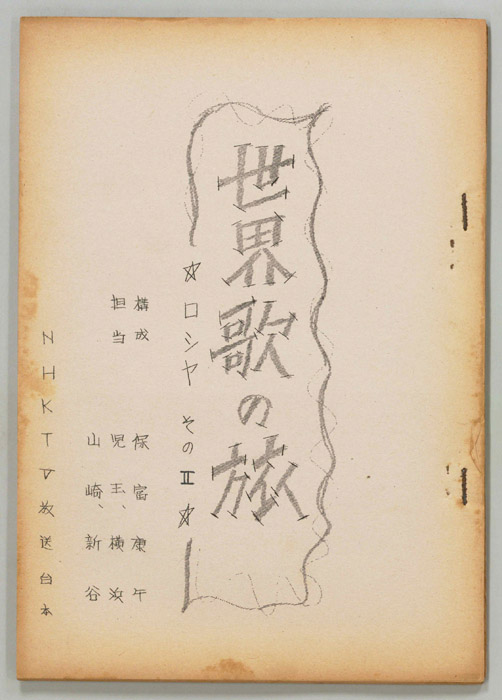 世界歌の旅
☆ロシヤ その Ⅱ☆
構成 保富康午
担当 児玉、横浜
山崎、新谷
NHKTV放送台本